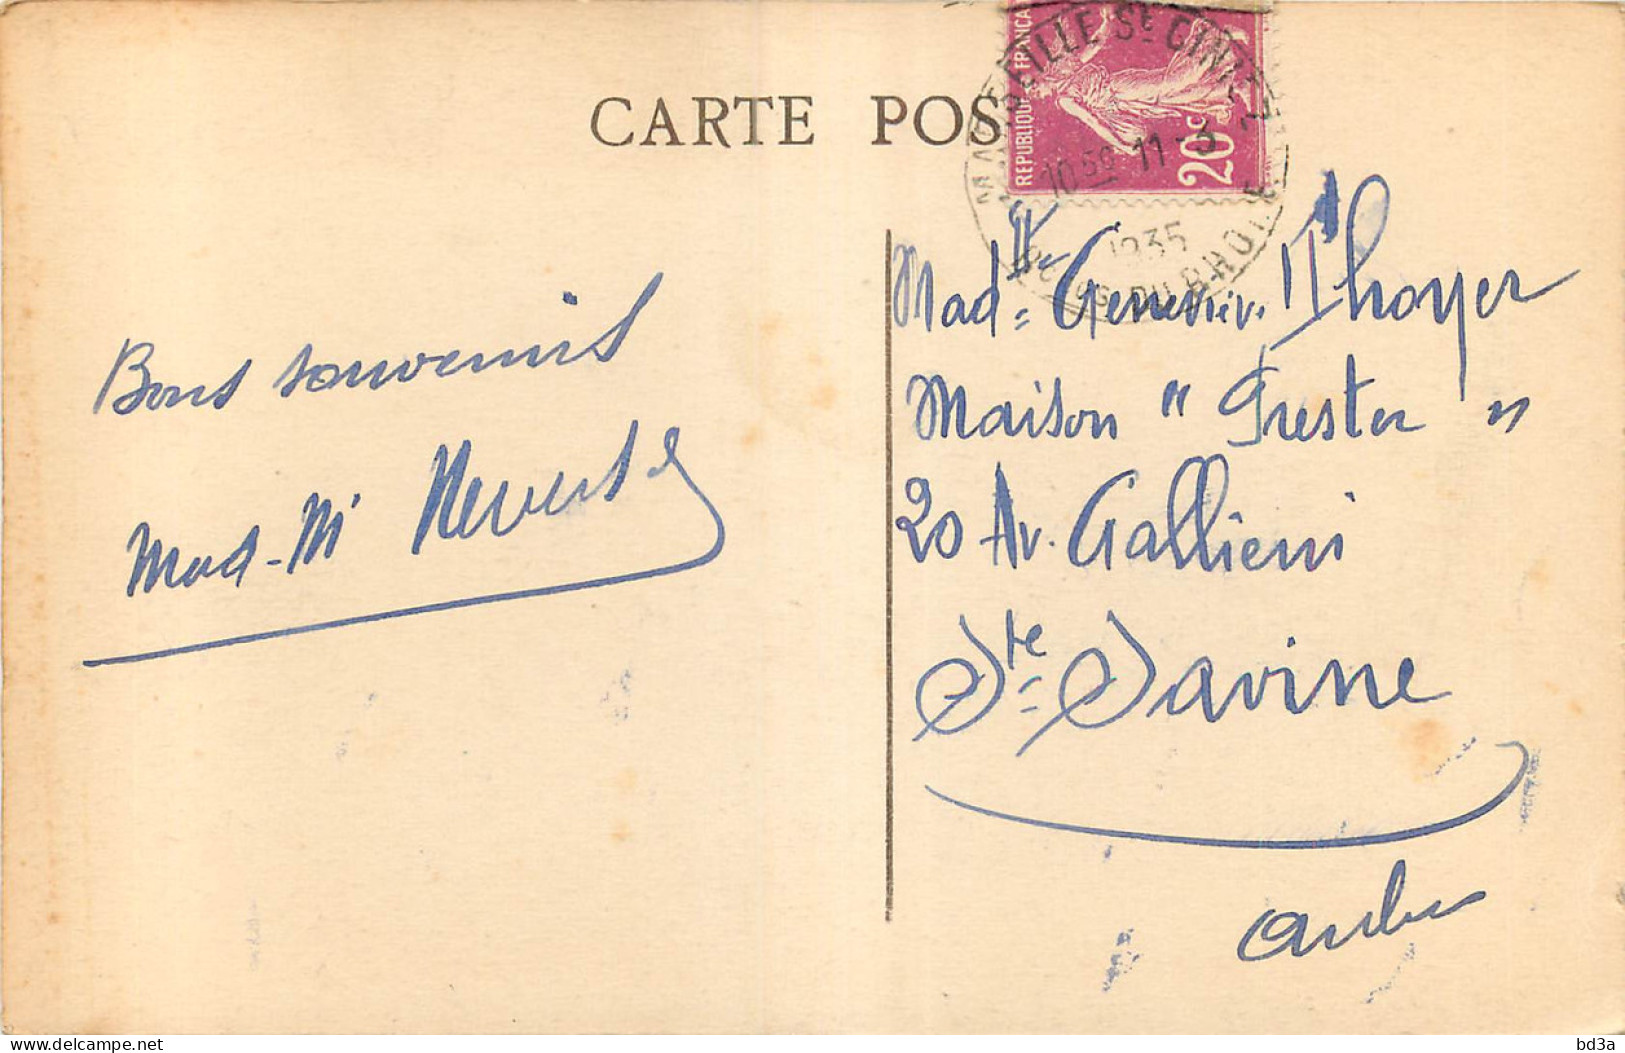 CARTE POS
REPUBLIQUE FRANÇA
20c
MARSEILLE St GINIEZ
10 50 11 - 3
1935
BOUCHES-DU-RHONE
Bons souvenirs
Mad - M
Madlle Geneviève Thoyer
Maison " Prester "
20 Av. Gallieni
Ste Savine
Aube
delcampe.net
bd3a